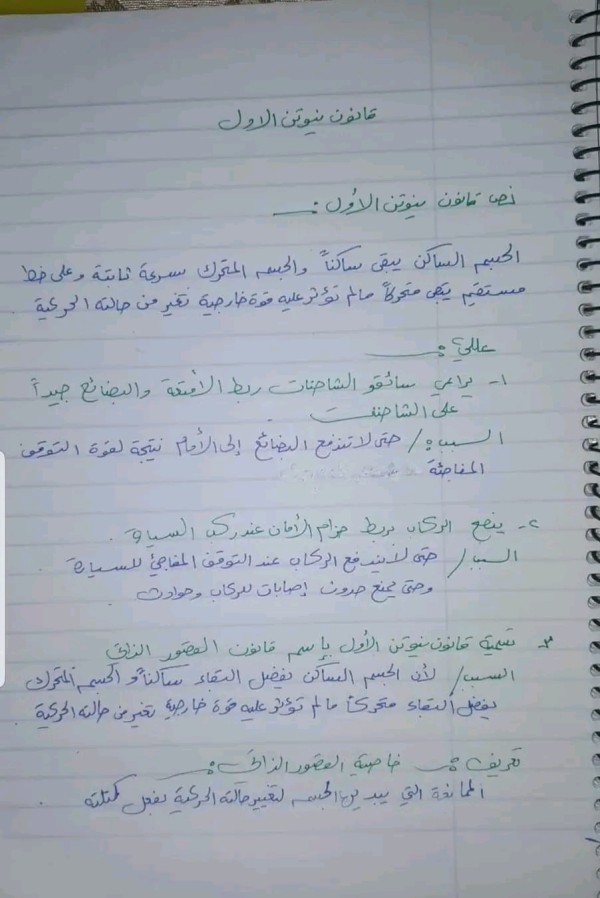 قانون نيوتن الاول
نص قانون نيوتن الأول :
الجسم الساكن يبقى ساكناً والجسم المتحرك بسرعة ثابتة وعلى خط
مستقيم يبقى متحركاً مالم تؤثر عليه قوة خارجية تغير من حالته الحركية
عللي :
١- يراعي سائقو الشاحنات ربط الأمتعة والبضائع جيداً
على الشاحنات
السبب / حتى لا تندفع البضائع إلى الأمام نتيجة لقوة التوقف
المفاجئة
٢- ينصح الركاب بربط حزام الأمان عند ركب السيارة
السبب / حتى لا يندفع الركاب عند التوقف المفاجئ للسيارة
وحتى يمنع حدوث إصابات للركاب وحوادث
٣- تسمية قانون نيوتن الأول بإسم قانون القصور الذاتي
السبب / لأن الجسم الساكن يفضل البقاء ساكناً و الجسم المتحرك
يفضل البقاء متحركاً مالم تؤثر عليه قوة خارجية تغير من حالته الحركية
تعريف : خاصية القصور الذاتي :
الممانعة التي يبديها الجسم لتغيير حالته الحركية بفعل كتلته